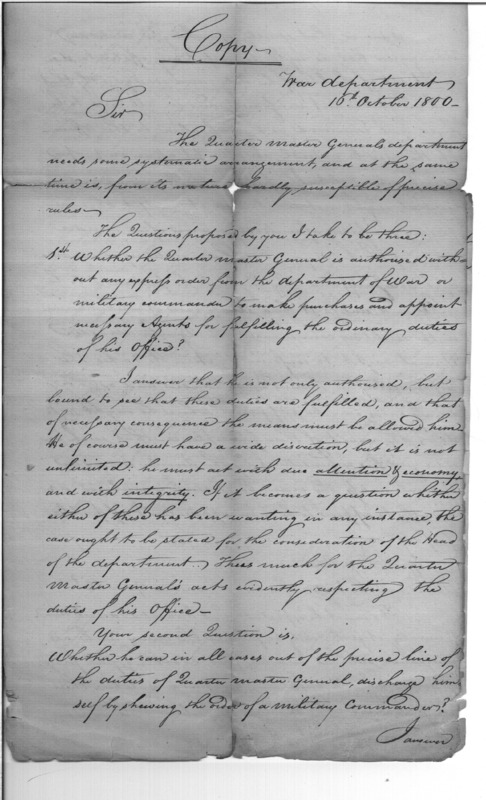 Copy
War department
10th October 1800
Sir
The Quarter Master Generals department
needs some systematic arrangement, and at the same
time is, from its nature hardly susceptible of precise
rules
The Questions proposed by you I take to be three:
1st Whether the Quarter Master General is authorised with
out any express order from the department of War or
military commander to make purchases and appoint
necessary Agents for fulfilling the ordinary duties
of his Office?
I answer that he is not only authorised, but
bound to see that these duties are fulfilled, and that
of necessary consequence the means must be allowed him
He of course must have a wide discretion, but it is not
unlimited: he must act with due attention & economy
and with integrity. If it becomes a question whether
either of these has been wanting in any instance, the
case ought to be stated for the consideration of the Head
of the department. Thus much for the Quarter
Master General's acts evidently respecting the
duties of his Office
Your second Question is,
Whether he can in all cases out of the precise line of
the duties of Quarter master General, discharge him
self by shewing the order of a military Commander?
I answer